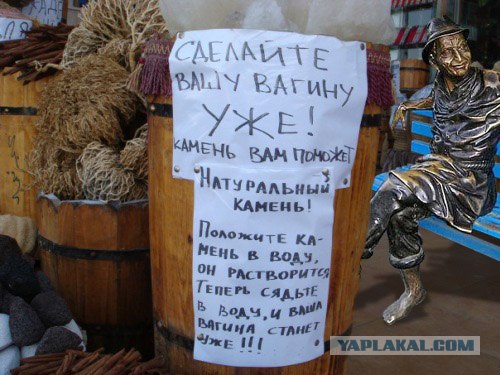 СДЕЛАЙТЕ
ВАШУ ВАГИНУ
УЖЕ!
КАМЕНЬ ВАМ ПОМОЖЕТ
НАТУРАЛЬНЫЙ
КАМЕНЬ!
ПОЛОЖИТЕ КА-
МЕНЬ В ВОДУ,
ОН РАСТВОРИТСЯ
ТЕПЕРЬ СЯДЬТЕ
В ВОДУ, И ВАША
ВАГИНА СТАНЕТ
УЖЕ!!!
YAPLAKAL.COM